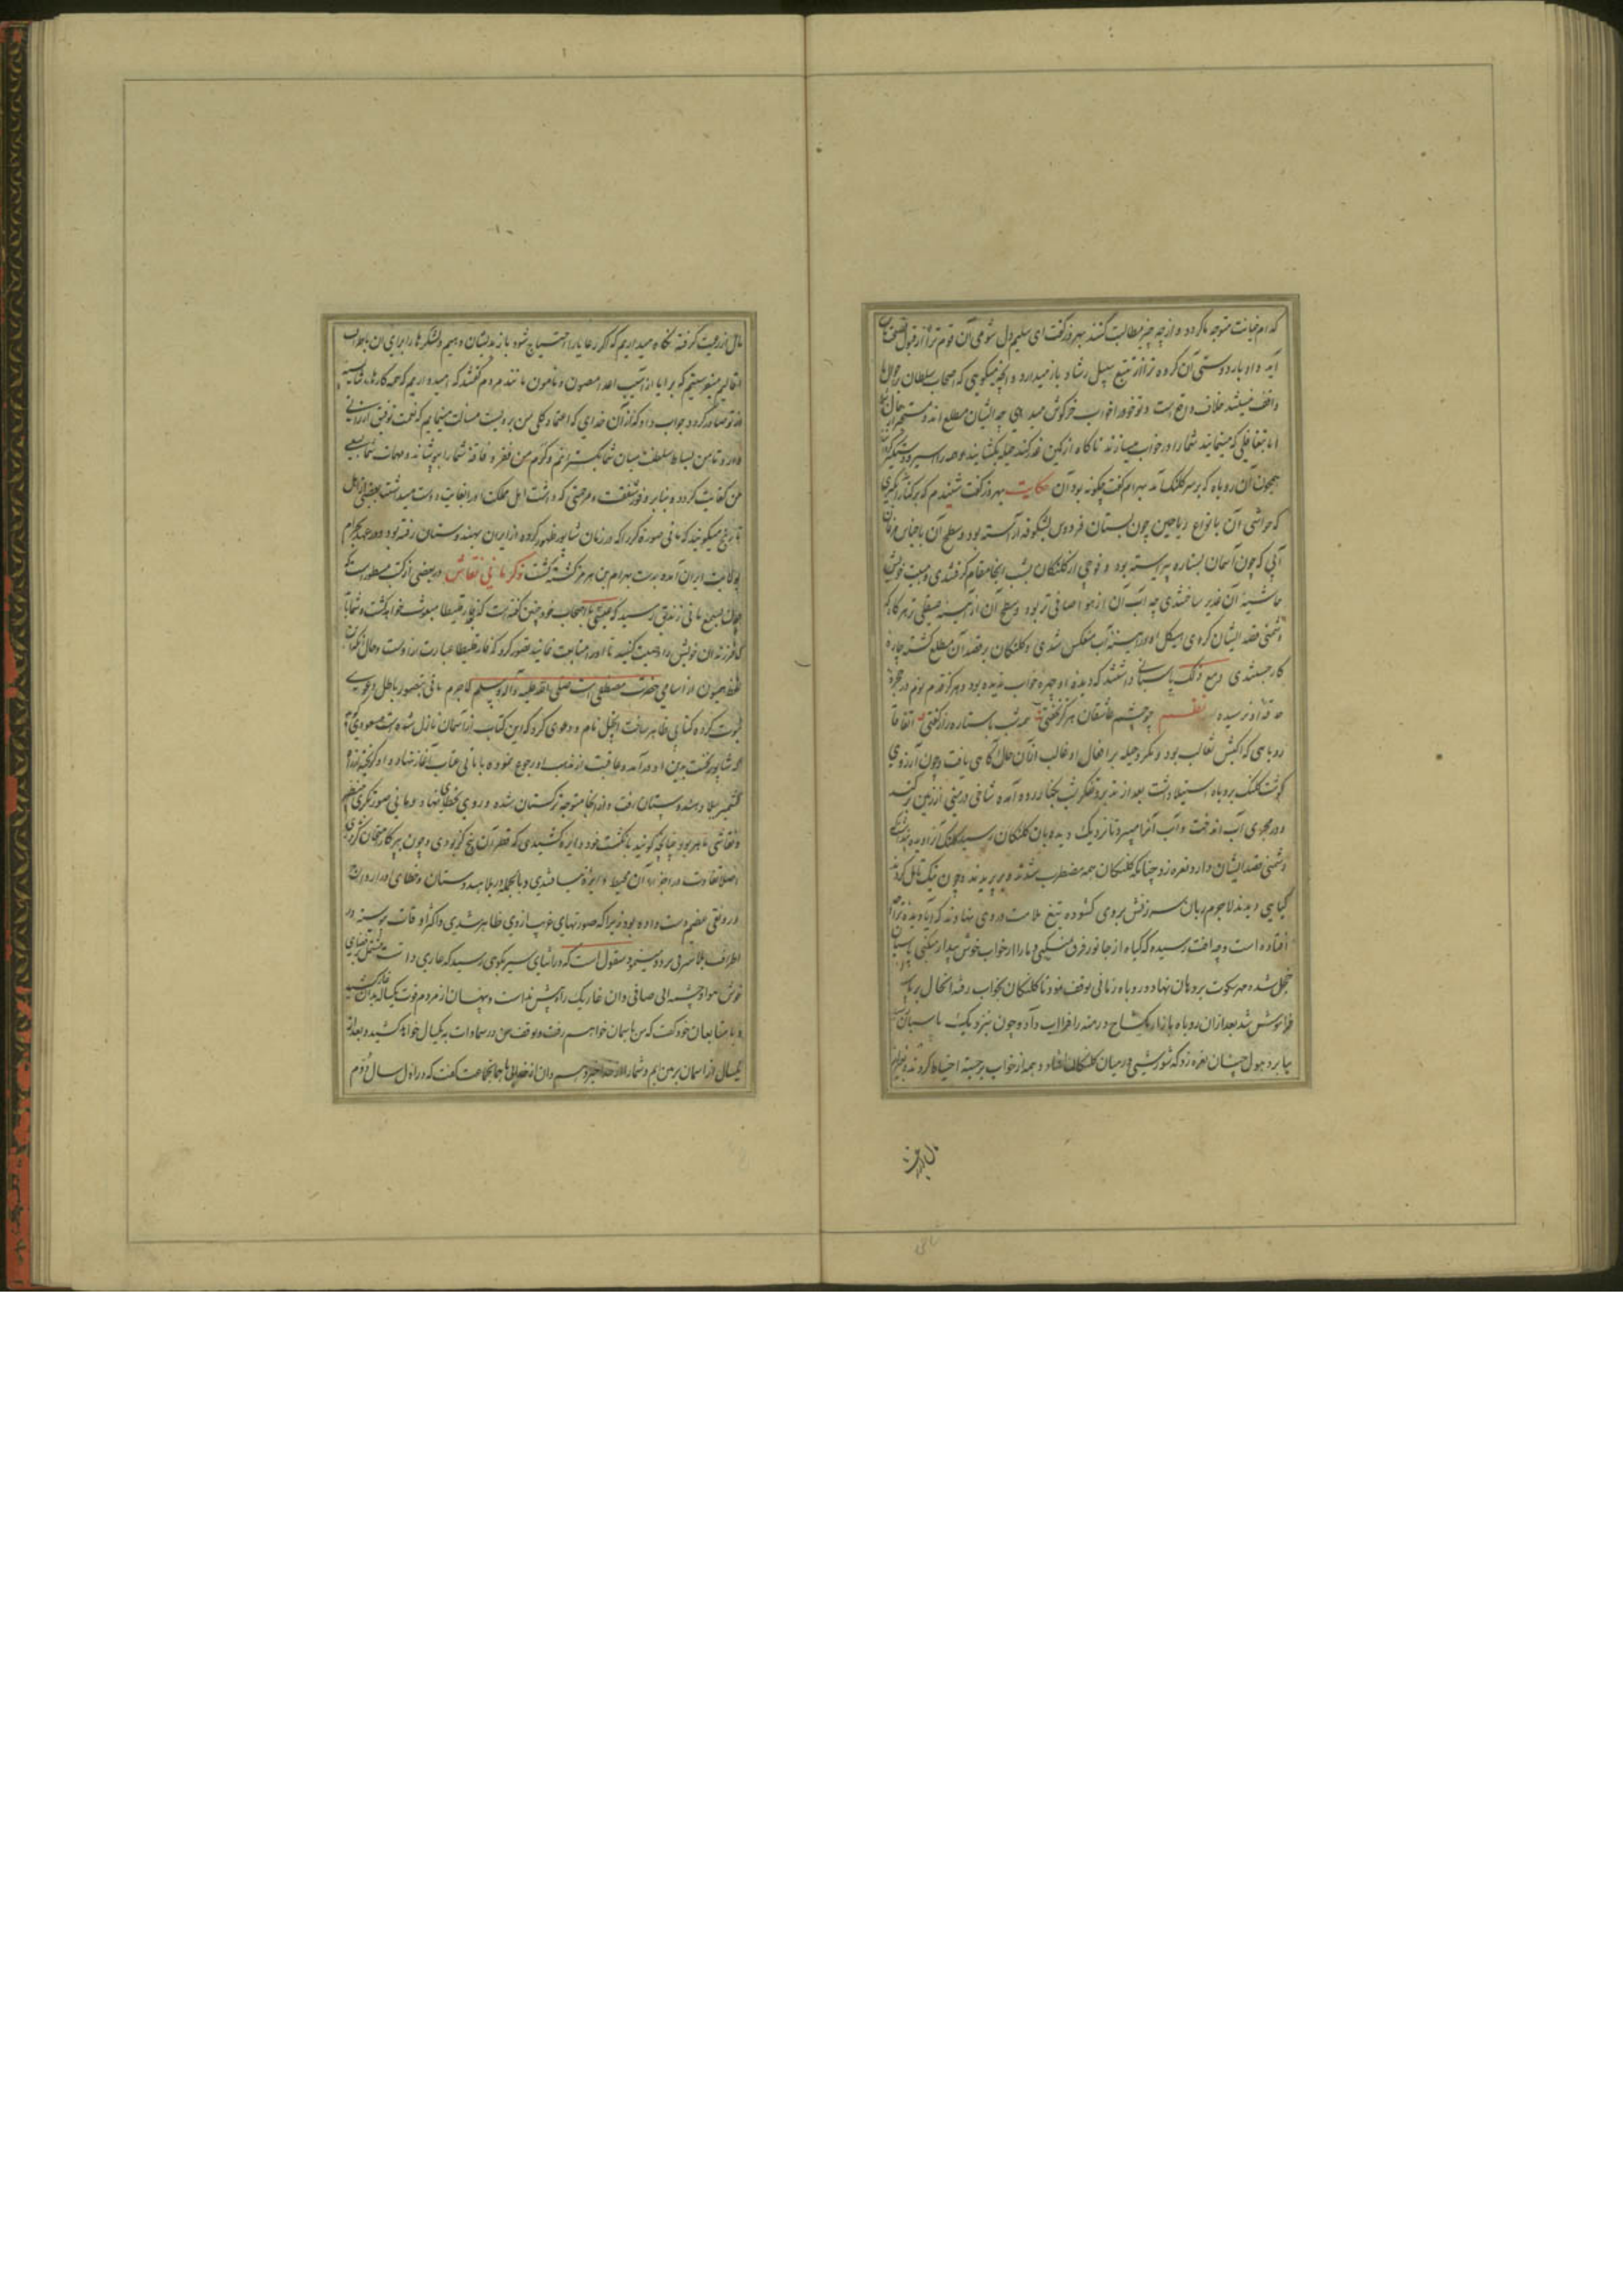 کدام خیانت متوجه ما گردد و از چه چیز مطالبت کنند بهروز گفت ای سلیم دل شومی آن قوم ترا از قبول نصیحت
آید و ادبار دوستی آن کروه ترا از تتبع سبیل رشاد باز میدارد و آنچه میکویی که اصحاب سلطان بر حال ما
واقف نیستند خلاف واقع است و تو خود را خواب خرکوش میدهی چه ایشان مطلع اند
اما بتغافلی که مینمایند شمارا در خواب میسازند تا کاه از کمین غدر کمند حیله بکشایند و همه را اسیر و دستکیر
همچون آن روباه که بر سر کلنک آمد بهرام گفت چکونه بود آن حکایت بهروز گفت شنیدم که بر کنار
که حواشی آن بانواع ریاحین چون بستان فردوس بشکوفه آراسته بود و سطح آن باجناس مرغان
آبی که چون آسمان بستاره پیراسته بود و فوجی از کلنکان بشب آنجا مقام کرفتندی و مبیت خویش
حاشیه آن غدیر ساختندی چه آب آن از هوا صافی تر بود و سطح آن از آیینه صیقلی تر هر کاه که
دشمنی قصد ایشان کردی هیکل او در آیینه آب منعکس شدی و کلنکان بر قصد آن مطلع کشته چاره
کار جستندی و مع ذلک پاسبانی داشتند که دیده او چهره خواب ندیده بود و هرکز قدم نوم در حجره
حدقه او نرسیده نظم چو چشم عاشقان هرکز نخفتی همه شب با ستاره راز کفتی اتفاقا
روباهی که اکیس ثعالب بود و مکر و حیله بر افعال او غالب از آن حال آکاهی یافت و چون آرزوی
کوشت کلنک بر روباه استیلا داشت بعد از تدبر و تفکر شب بکنار رود آمده شاخی درمنه از زمین برکند
و در مجری آب انداخت و آب آنرا میبرد تا نزدیک دیده بان کلنکان رسید کلنک آنرا دیده
دشمنی قصد ایشان دارد نعره زد چنانکه کلنکان همه مضطرب شدند و بپریدند و چون نیک تامل کردند
کیاهی دیدند لاجرم زبان سرزنش بروی کشوده تیغ ملامت دروی نهادند که
افتاده است و چه آفت رسیده که کیاه از جانور فرق نمیکنی و ما را از خواب خوش بیدار میکنی پاسبان
خجل شده مهر سکوت بر دهان نهاد و روباه زمانی توقف نمود تا کلنکان بخواب رفته آنحال بر
فراموش شد بعد از آن روباه باز از یک شاخ درمنه را فرا آب داد و چون نزدیک پاسبان
بیا برد هول چنان نعره زد که شورشی در میان کلنکان افتاد و همه از خواب برجسته احتیاط کردند
مال از رعیت کرفته نکاه میداریم که اکر رعایا را احتیاج شود باز بدیشان دهیم و لشکرها را برای آن باطراف
اقالیم میفرستیم که برایا از آسیب اعدا مصون و مامون مانند مردم گفتند که امیدواریم که همه کارهاء شایسته
از تو صادر کردد جواب داد که از آن خدای که اعتماد کلی من بروست مسالت مینمایم که نعمت توفیق ارزانی
دارد تا من بساط سلطنت میان شما بکسترانم و کرم من فقر و فاقه شما را بپوشاند و مهمات شما بسعی
من کفایت کردد و بنابر وفور شفقت و مرحمتی که داشت اهل مملکت او را بغایت دوست میداشتند بعضی از اهل
تاریخ میکویند که مانی صورتکر را که در زمان شاپور ظهور کرده از ایران بهندوستان رفته بود و در عهد بهرام
بولایت ایران آمده بدست بهرام بن هرمز کشته کشت ذکر مانی نقاش در بعضی از کتب مسطور است که
چون بسمع مانی زندیق رسید که عیسی با اصحاب خود چنین گفته است که فارقلیطا مبعوث خواهد کشت و شما باید
که فرزندان خویش را وصیت کنید تا او را متابعت نمایند تصور کرد که فارقلیطا عبارت از اوست و حال آنکه آن
لفظ همیون از اسامی حضرت مصطفی است صلی الله علیه و آله و سلم لاجرم مانی بتصور باطل دعوی
نبوت کرده کتابی ظاهر ساخت انجیل نام و دعوی کرد که این کتاب از آسمان نازل شده است
که شاپور نخست بدین او درآمد و عاقبت از مذهب او رجوع نموده با مانی عتاب آغاز نهاد و او کریخته از راه
کشمیر ببلاد هندوستان رفت و از آنجا متوجه ترکستان شده و روی بخطای نهاد و مانی صورتکری
و نقاشی ماهر بود چنانچه کویند بانکشت خود دایره کشیدی که قطر آن پنج کز بودی و چون پرکار امتحان کردندی
اصلا تفاوت در اجزاء آن محیط دایره نیافتندی و بالجمله در بلاد هندوستان و خطای او را رواج
و رونقی عظیم دست داده بود زیرا که صورتهای خوب از وی ظاهر شدی و اکثر اوقات پیوسته در
اطراف بلاد شرقی بر دو سیر نمود منقول است که در اثنای سیر بکوهی رسید که غاری داشت مشتمل بر فضای
خوش هوا و چشمه آبی صافی و آن غار یک راه بیش نداشت و پنهان از مردم قوت یکساله بدان غار کشید
و با متابعان خود گفت که من بآسمان خواهم رفت و توقف من در سماوات به یکسال خواهد کشید و بعد از
یکسال از آسمان بر زمین آیم و شما را از خدا خبر دهم و با آن جماعت گفت که در اول سال دوم
مال از رعیت